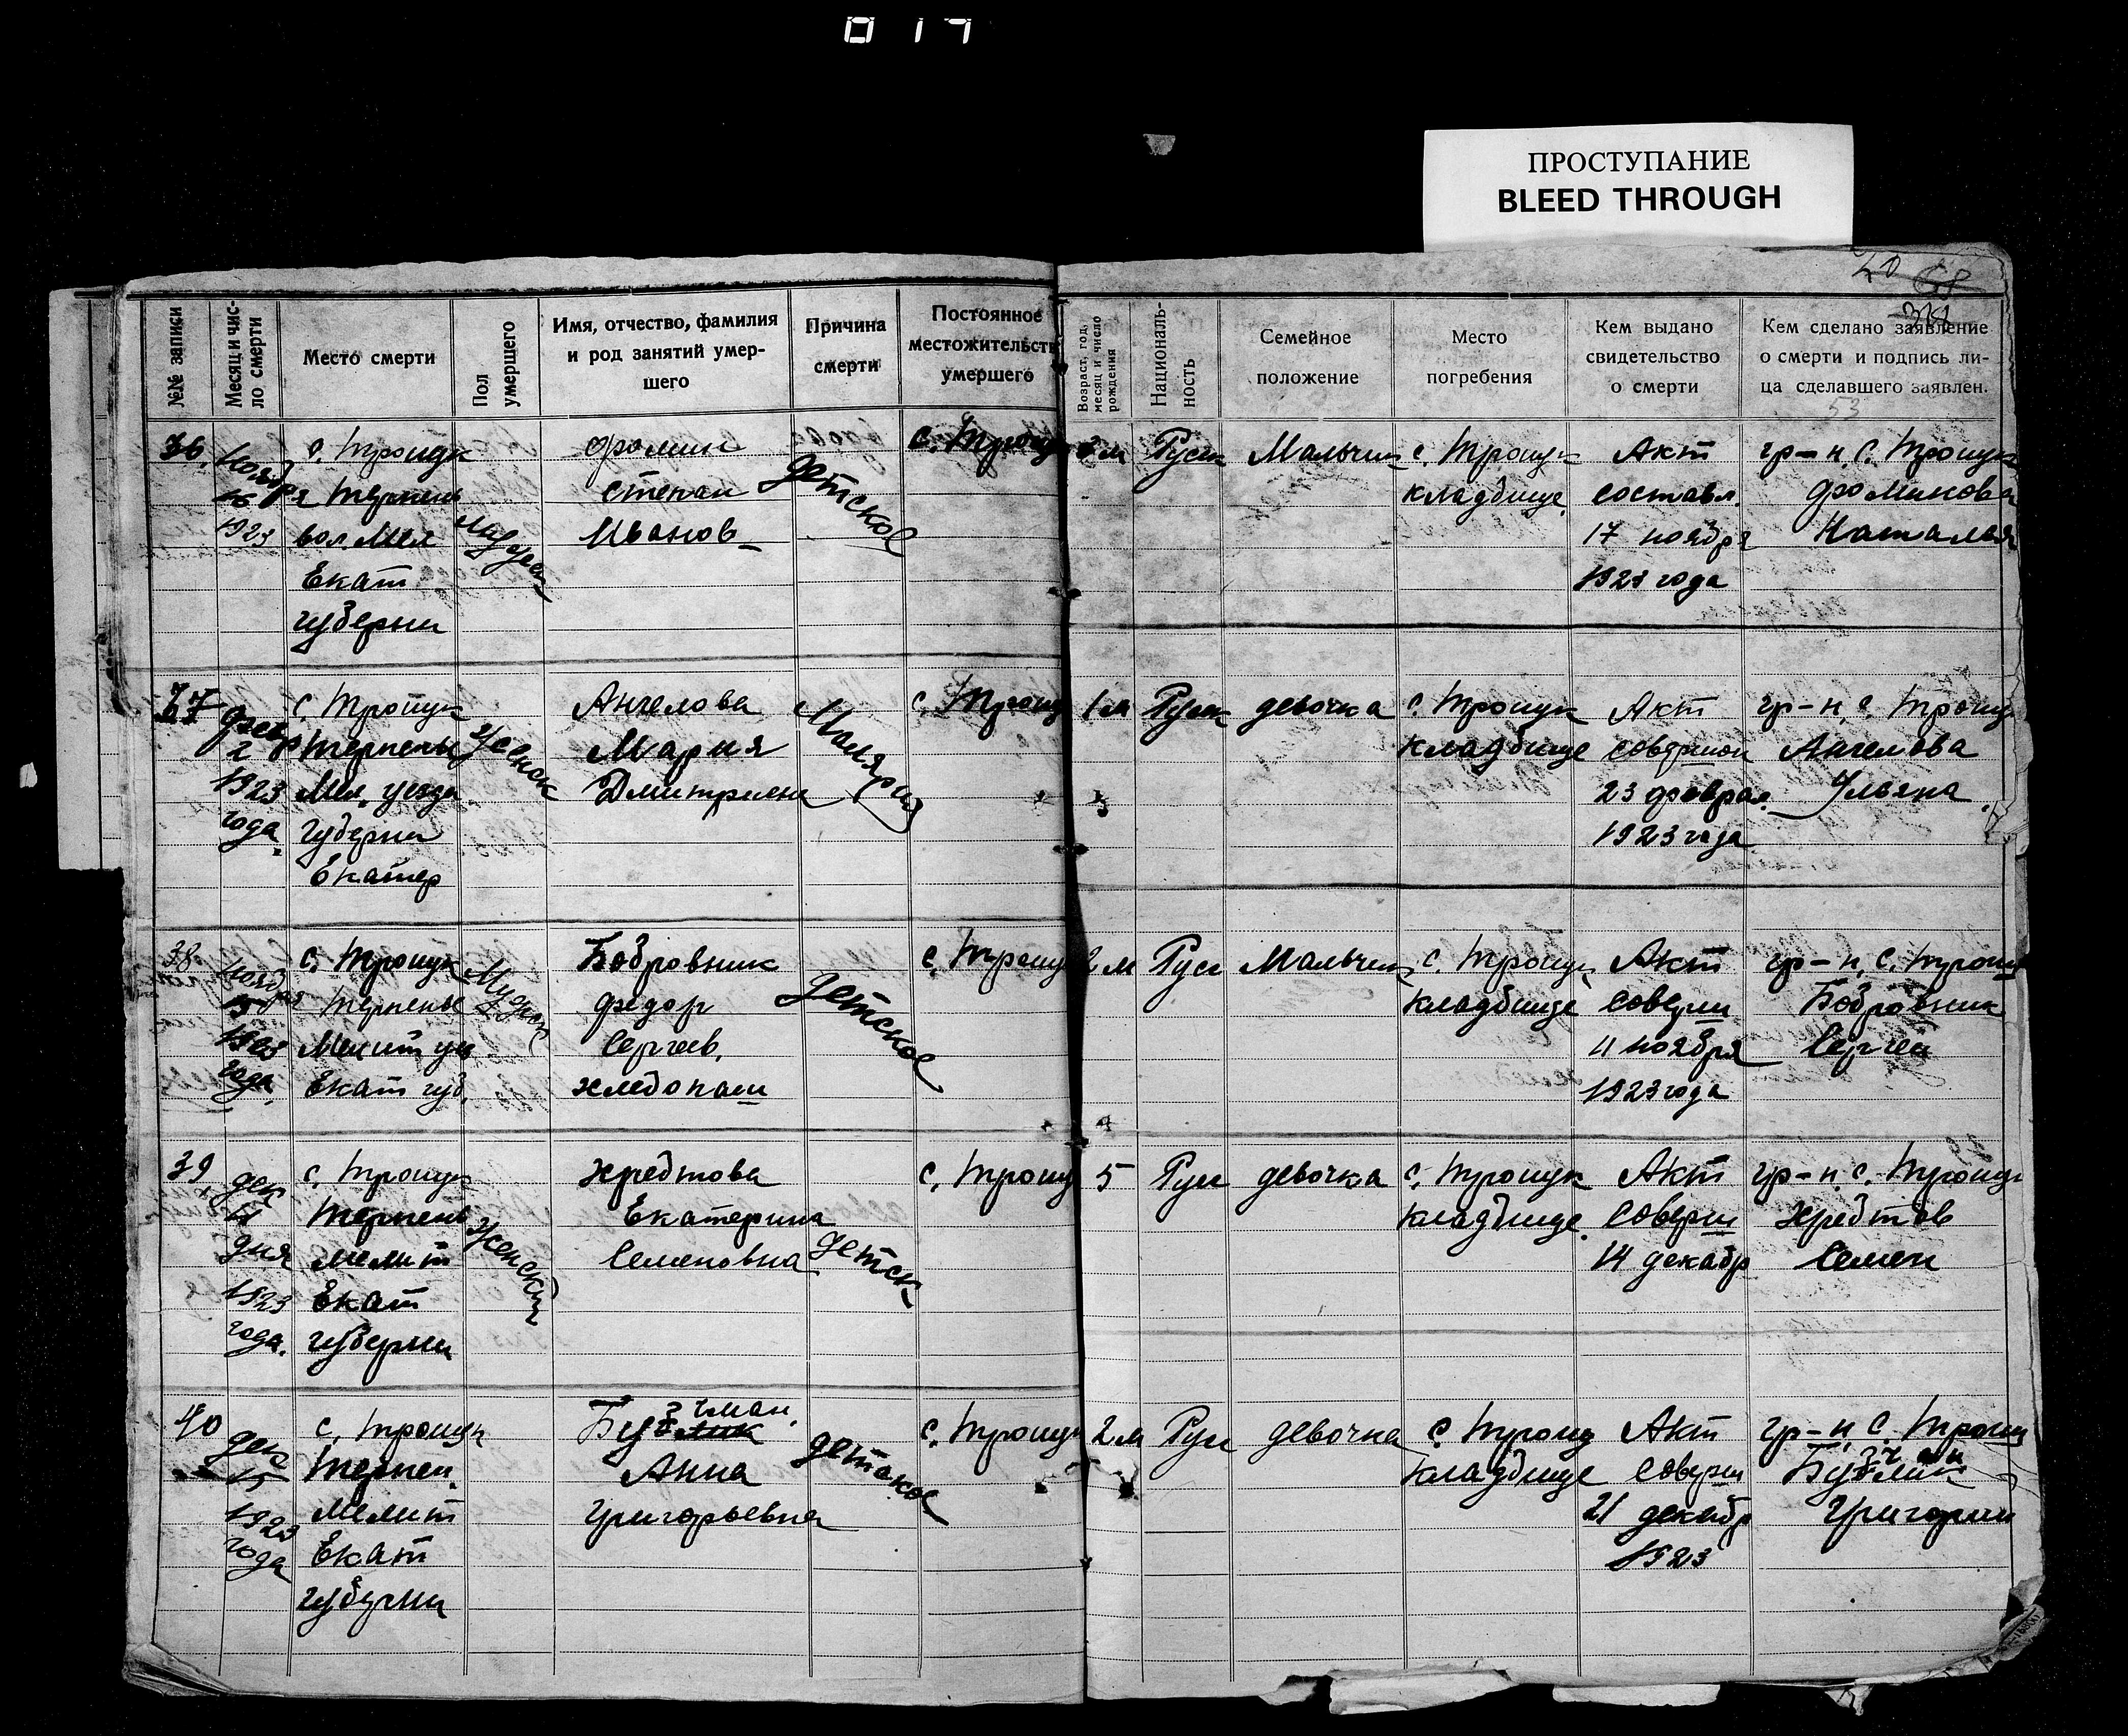 019
ПРОСТУПАНИЕ
BLEED THROUGH
20 68
53
№№ записи
Месяц и чис-
ло смерти
Место смерти
Пол
умершего
Имя, отчество, фамилия
и род занятий умер-
шего
Причина
смерти
Постоянное
местожительств
умершего
Возраст, год,
месяц и число
рождения
Националь-
ность
Семейное
положение
Место
погребения
Кем выдано
свидетельство
о смерти
Кем сделано заявление
о смерти и подпись ли-
ца сделавшего заявлен.
36
ноября
16
1923
с. Трощук
Терпень
вол. Мел
Екат
губерни
Мужск
Фомин
Степан
Иванов
детское
с. Трощу
м
Руск
Мальчик
с. Трощук
кладбище
Акт
составл.
17 ноября
1923 года
гр-н. с. Трощук
Фоминова
Наталья
37
февр
2
1923
года.
с. Трощук
Терпень
Мел. уезда
губерни
Екатер
Женск
Ангелова
Мария
Дмитриевн
Малярия
с. Трощу
1 м
Руск
девочка
с. Трощук
кладбище
Акт
совершон
23 феврал.
1923 года
гр-н. с. Трощу
Ангелова
Ульяна
38
ноября
1923
года.
с. Трощук
Терпенье
Мелит уез
Екат губ.
Мужск
Бобровник
Федор
Сергеев.
хлебопаш
детское
с. Трощу
2 м
Руск
Мальчик
с. Трощук
кладбище
Акт
соверш
11 ноября
1923 года
гр-н. с. Трощ
Бобровник
Сергей
39
дек
11
дня
1923
года.
с. Трощук
Терпень
Мелит
Екат
губерни
Женский
Хребтова
Екатерина
Семеновна
детск
с. Трощу
5
Руск
девочка
с. Трощук
кладбище
Акт
соверш
14 декабр
гр-н. с. Трощу
Хребтов
Семен
40
дек
15
1923
года
с. Трощук
Терпен.
Мелит
Екат
губерни
Бузчман.
Анна
Григорьевна
детское
с. Трощук
2 м
Руск
девочка
с. Трощу
кладбище
Акт
соверш
21 декабр
1923
гр-н. с. Трощ
Григорий